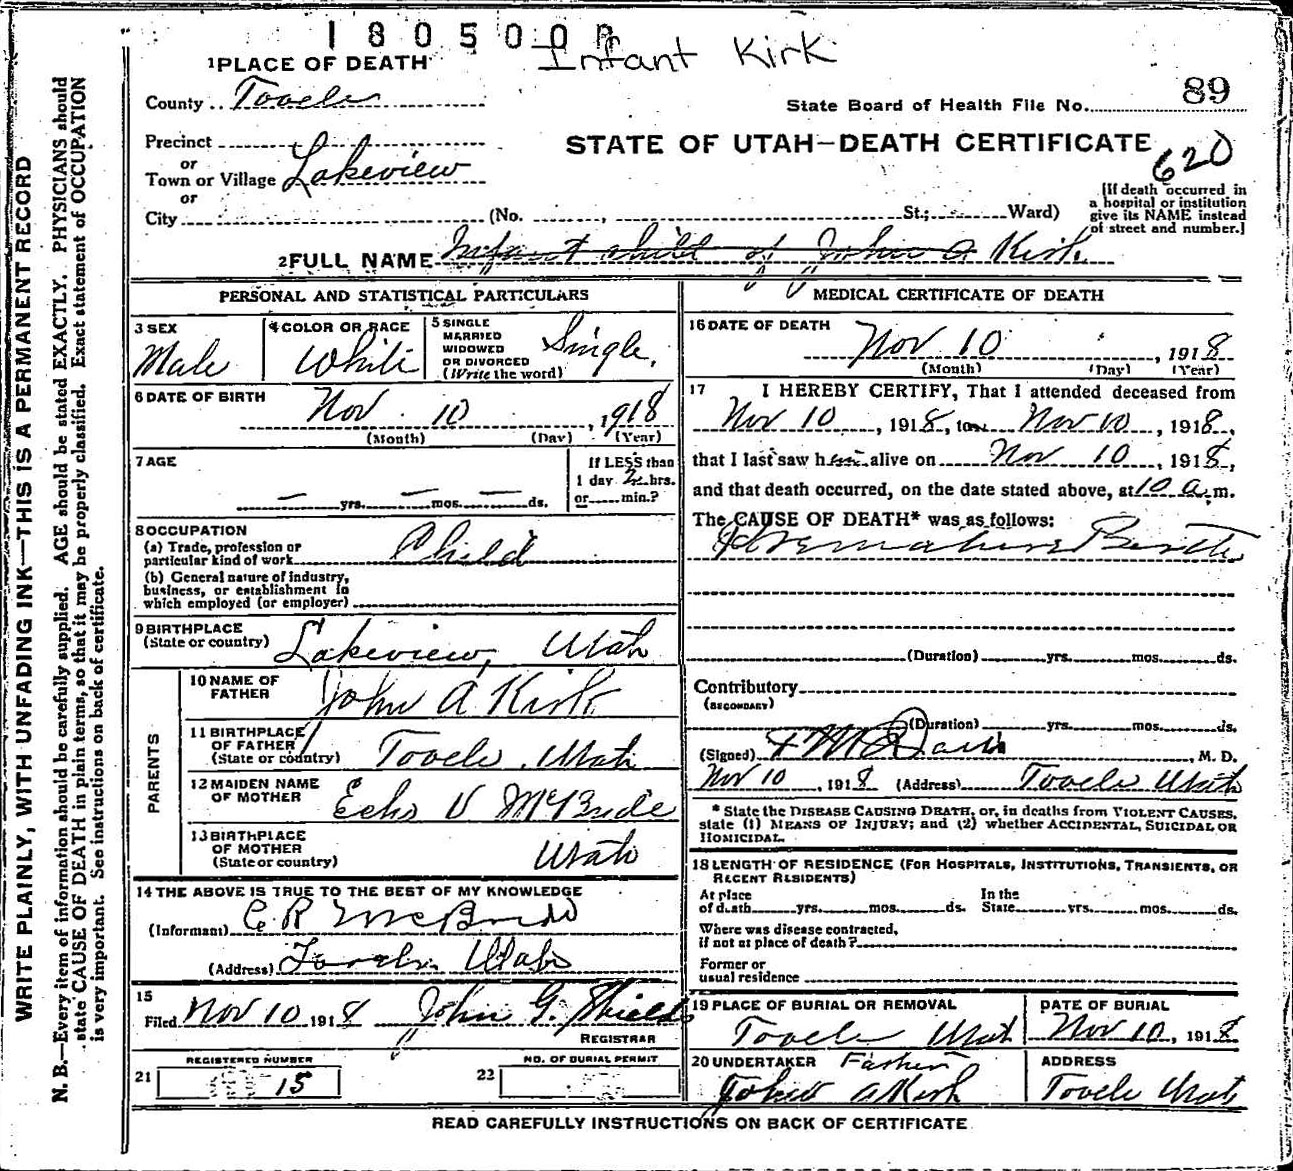 180500
Infant Kirk
1 PLACE OF DEATH
County Tooele
State Board of Health File No. 89
Precinct
or
Town or Village Lakeview
or
City (No. , St.; Ward)
STATE OF UTAH—DEATH CERTIFICATE
620
[If death occurred in
a hospital or institution
give its NAME instead
of street and number.]
2 FULL NAME Infant child of John A Kirk.
PERSONAL AND STATISTICAL PARTICULARS
3 SEX
Male
4 COLOR OR RACE
White
5 SINGLE
MARRIED
WIDOWED
OR DIVORCED
(Write the word)
Single,
6 DATE OF BIRTH
Nov. 10, 1918
(Month) (Day) (Year)
7 AGE
— yrs. — mos. — ds.
If LESS than
1 day 2 hrs.
or min.?
8 OCCUPATION
(a) Trade, profession or
particular kind of work Child
(b) General nature of industry,
business, or establishment in
which employed (or employer)
9 BIRTHPLACE
(State or country) Lakeview, Utah
PARENTS
10 NAME OF
FATHER John A Kirk
11 BIRTHPLACE
OF FATHER
(State or country) Tooele, Utah
12 MAIDEN NAME
OF MOTHER Echo V McBride
13 BIRTHPLACE
OF MOTHER
(State or country) Utah
14 THE ABOVE IS TRUE TO THE BEST OF MY KNOWLEDGE
(Informant) C R McBride
(Address) Tooele Utah
15
Filed Nov 10 1918 John G. Shields
REGISTRAR
REGISTERED NUMBER
21 15
NO. OF BURIAL PERMIT
22
MEDICAL CERTIFICATE OF DEATH
16 DATE OF DEATH
Nov 10, 1918
(Month) (Day) (Year)
17 I HEREBY CERTIFY, That I attended deceased from
Nov 10, 1918, to Nov 10, 1918,
that I last saw him alive on Nov 10, 1918,
and that death occurred, on the date stated above, at 10 a.m.
The CAUSE OF DEATH* was as follows:
Premature Birth
(Duration) yrs. mos. ds.
Contributory
(SECONDARY)
(Duration) yrs. mos. ds.
(Signed) Davis, M. D.
Nov 10, 1918 (Address) Tooele Utah
* State the DISEASE CAUSING DEATH, or, in deaths from VIOLENT CAUSES,
state (1) MEANS OF INJURY; and (2) whether ACCIDENTAL, SUICIDAL OR
HOMICIDAL.
18 LENGTH OF RESIDENCE (FOR HOSPITALS, INSTITUTIONS, TRANSIENTS, OR
RECENT RESIDENTS)
At place
of death yrs. mos. ds.
In the
State yrs. mos. ds.
Where was disease contracted,
if not at place of death?
Former or
usual residence
19 PLACE OF BURIAL OR REMOVAL
Tooele Utah
DATE OF BURIAL
Nov 10, 1918
20 UNDERTAKER Father
John A Kirk
ADDRESS
Tooele Utah
READ CAREFULLY INSTRUCTIONS ON BACK OF CERTIFICATE
WRITE PLAINLY, WITH UNFADING INK—THIS IS A PERMANENT RECORD
N. B.—Every item of information should be carefully supplied. AGE should be stated EXACTLY. PHYSICIANS should
state CAUSE OF DEATH in plain terms, so that it may be properly classified. Exact statement of OCCUPATION
is very important. See instructions on back of certificate.